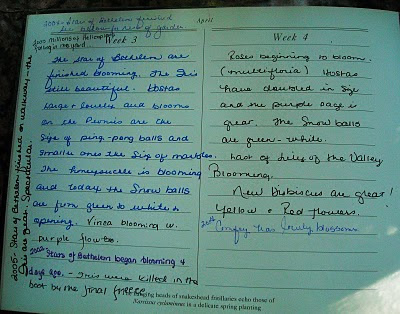 2005 - Star of Bethlehem finished
Iris between farside of garden
April
2005 millions of Helicopters
flying in the yard
Week 3
The Star of Bethelem are
finished blooming. The Iris
still beautiful. Hostas
large & lovely and blooms
on the Peonies are the
size of ping-pong balls and
smaller ones the size of marbles.
The honeysuckle is blooming
and today the Snow balls
are from green to white &
opening. Vinca blooming w.
purple flowers.
Stars of Bethelem began blooming 4
days ago. - Irises were killed in the
boot by the final freeze
2005 - Stars of Bethelem finished on walkway - the
Irises are great. Spectacular.
Week 4
Roses beginning to bloom.
(multiflora) Hostas
have doubled in size
and the purple sage is
great. The Snow balls
are green-white.
Last of Lily of the Valley
Blooming.
New hibiscus are great!
Yellow & Red flowers.
Comfrey has curly blossoms
hanging heads of snakeshead fritillaries echo those of
Narcissus cyclamineus in a delicate spring planting